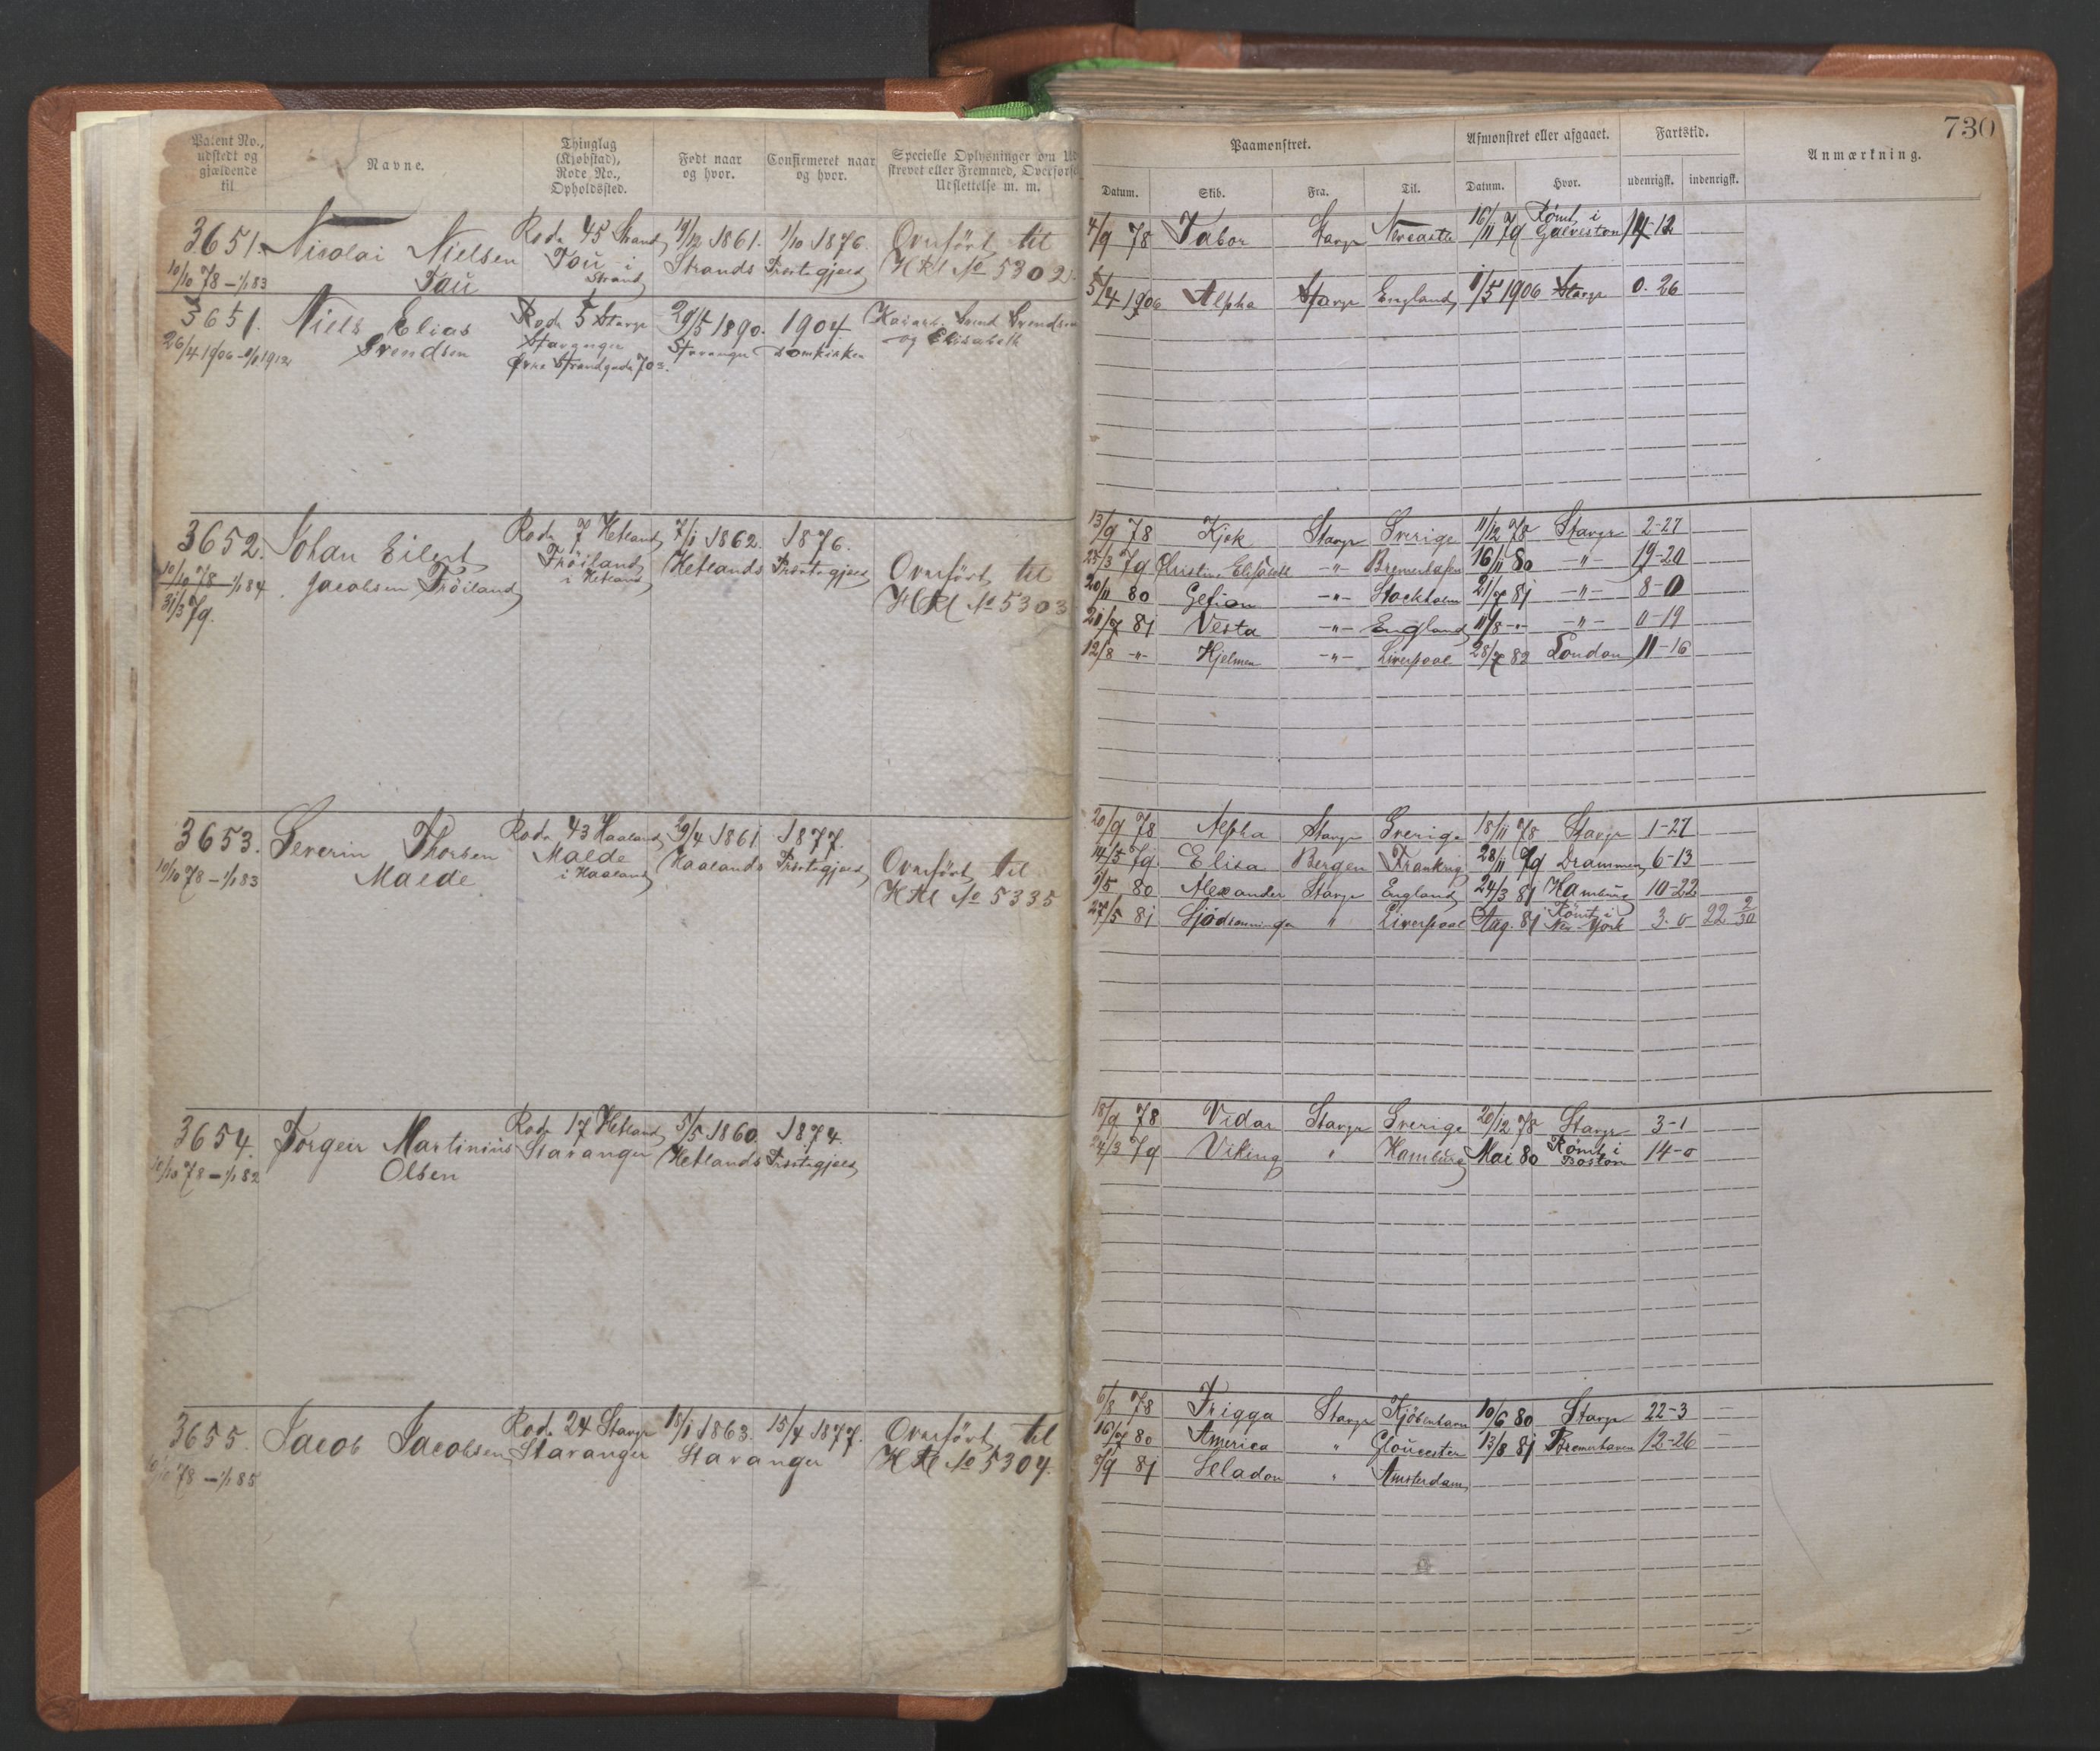 Patent No., udstedt og gjældende til
Navne.
Thinglag (Kjøbstad), Rode No., Opholdssted.
Født naar og hvor.
Confirmeret naar og hvor.
Specielle Oplysninger om Ud
strevet eller Fremmed, Overførse
Udslettelse m. m.
3651. Nicolai Nielsen Rode 45 Strand 1861. 1/10 1876. Overført til
10/10 78 – 1/1 83 Tau Tou i Strand Strands Præstegjæld HRl No 5302.
3651. Niels Elias Rode 5 Stavgr 29/5 1890. 1904 Svend Svendsen
26/4 1906 – 1/1 1912 Svendsen Stavanger Stavanger Domkirken og Elisabeth
Øvre Strandgade 703.
3652. Johan Eilert Rode 7 Hetland 7/1 1862. 1876.
10/10 78 – 1/1 84 Jacobsen Tröiland Tröiland i Hetland Hetlands Præstegjæld Overført til
31/3 79. HRl No 5303
3653. Severin Thorsen Rode 43 Haaland 29/4 1861 1877.
10/10 78 – 1/1 83 Malde Malde i Haaland Haalands Præstegjæld Overført til
HRl No 5335
3654. Torgeir Martinius Rode 17 Hetland 5/5 1860. 1874.
10/10 78 – 1/1 82 Olsen Stavanger Hetlands Præstegjæld
3655. Jacob Jacobsen Rode 24 Stavgr 18/1 1863. 15/4 1877. Overført til
10/10 78 – 1/1 85 Stavanger Stavanger HRl No 5304.
730
Paamønstret. Afmønstret eller afgaaet. Fartstid. Anmærkning.
Datum. Skib. Fra. Til. Datum. Hvor. udenrigsk. indenrigsk.
4/9 78 Tabor Stavgr Newcastle 16/11 79 Rømt i Galveston 14-12
5/4 1906 Alpha Stavgr England 1/5 1906 Stavgr 0.26
13/9 78 Kjek Stavgr Sverige 11/12 78 Stavgr 2-27
25/3 79 Christine Elisabeth -"- Bremerhafen 16/11 80 -"- 19-20
20/11 80 Gefion -"- Stockholm 21/7 81 -"- 8-0
21/7 81 Vesta -"- England 11/8 -"- -"- 0-19
12/8 -"- Hjelmen -"- Liverpool 28/7 82 London 11-16
20/9 78 Alpha Stavgr Sverige 18/11 78 Stavgr 1-27
14/5 79 Elisa Bergen Frankrig 28/11 79 Drammen 6-13
1/5 80 Alexander Stavgr England 24/3 81 Hamburg 10-22
27/5 81 " Liverpool Aug. 81 Rømt i New York 3-0 22 2/30
18/9 78 Vidar Stavgr Sverige 20/12 78 Stavgr 3-1
24/3 79 Viking " Hamburg Mai 80 Rømt i Boston 14-0
6/8 78 Frigga Stavgr Kjöbenhavn 10/6 80 Stavgr 22-3 –
16/7 80 America " Gloucester 13/8 81 Bremerhaven 12-26 –
7/9 81 Seladon " Amsterdam